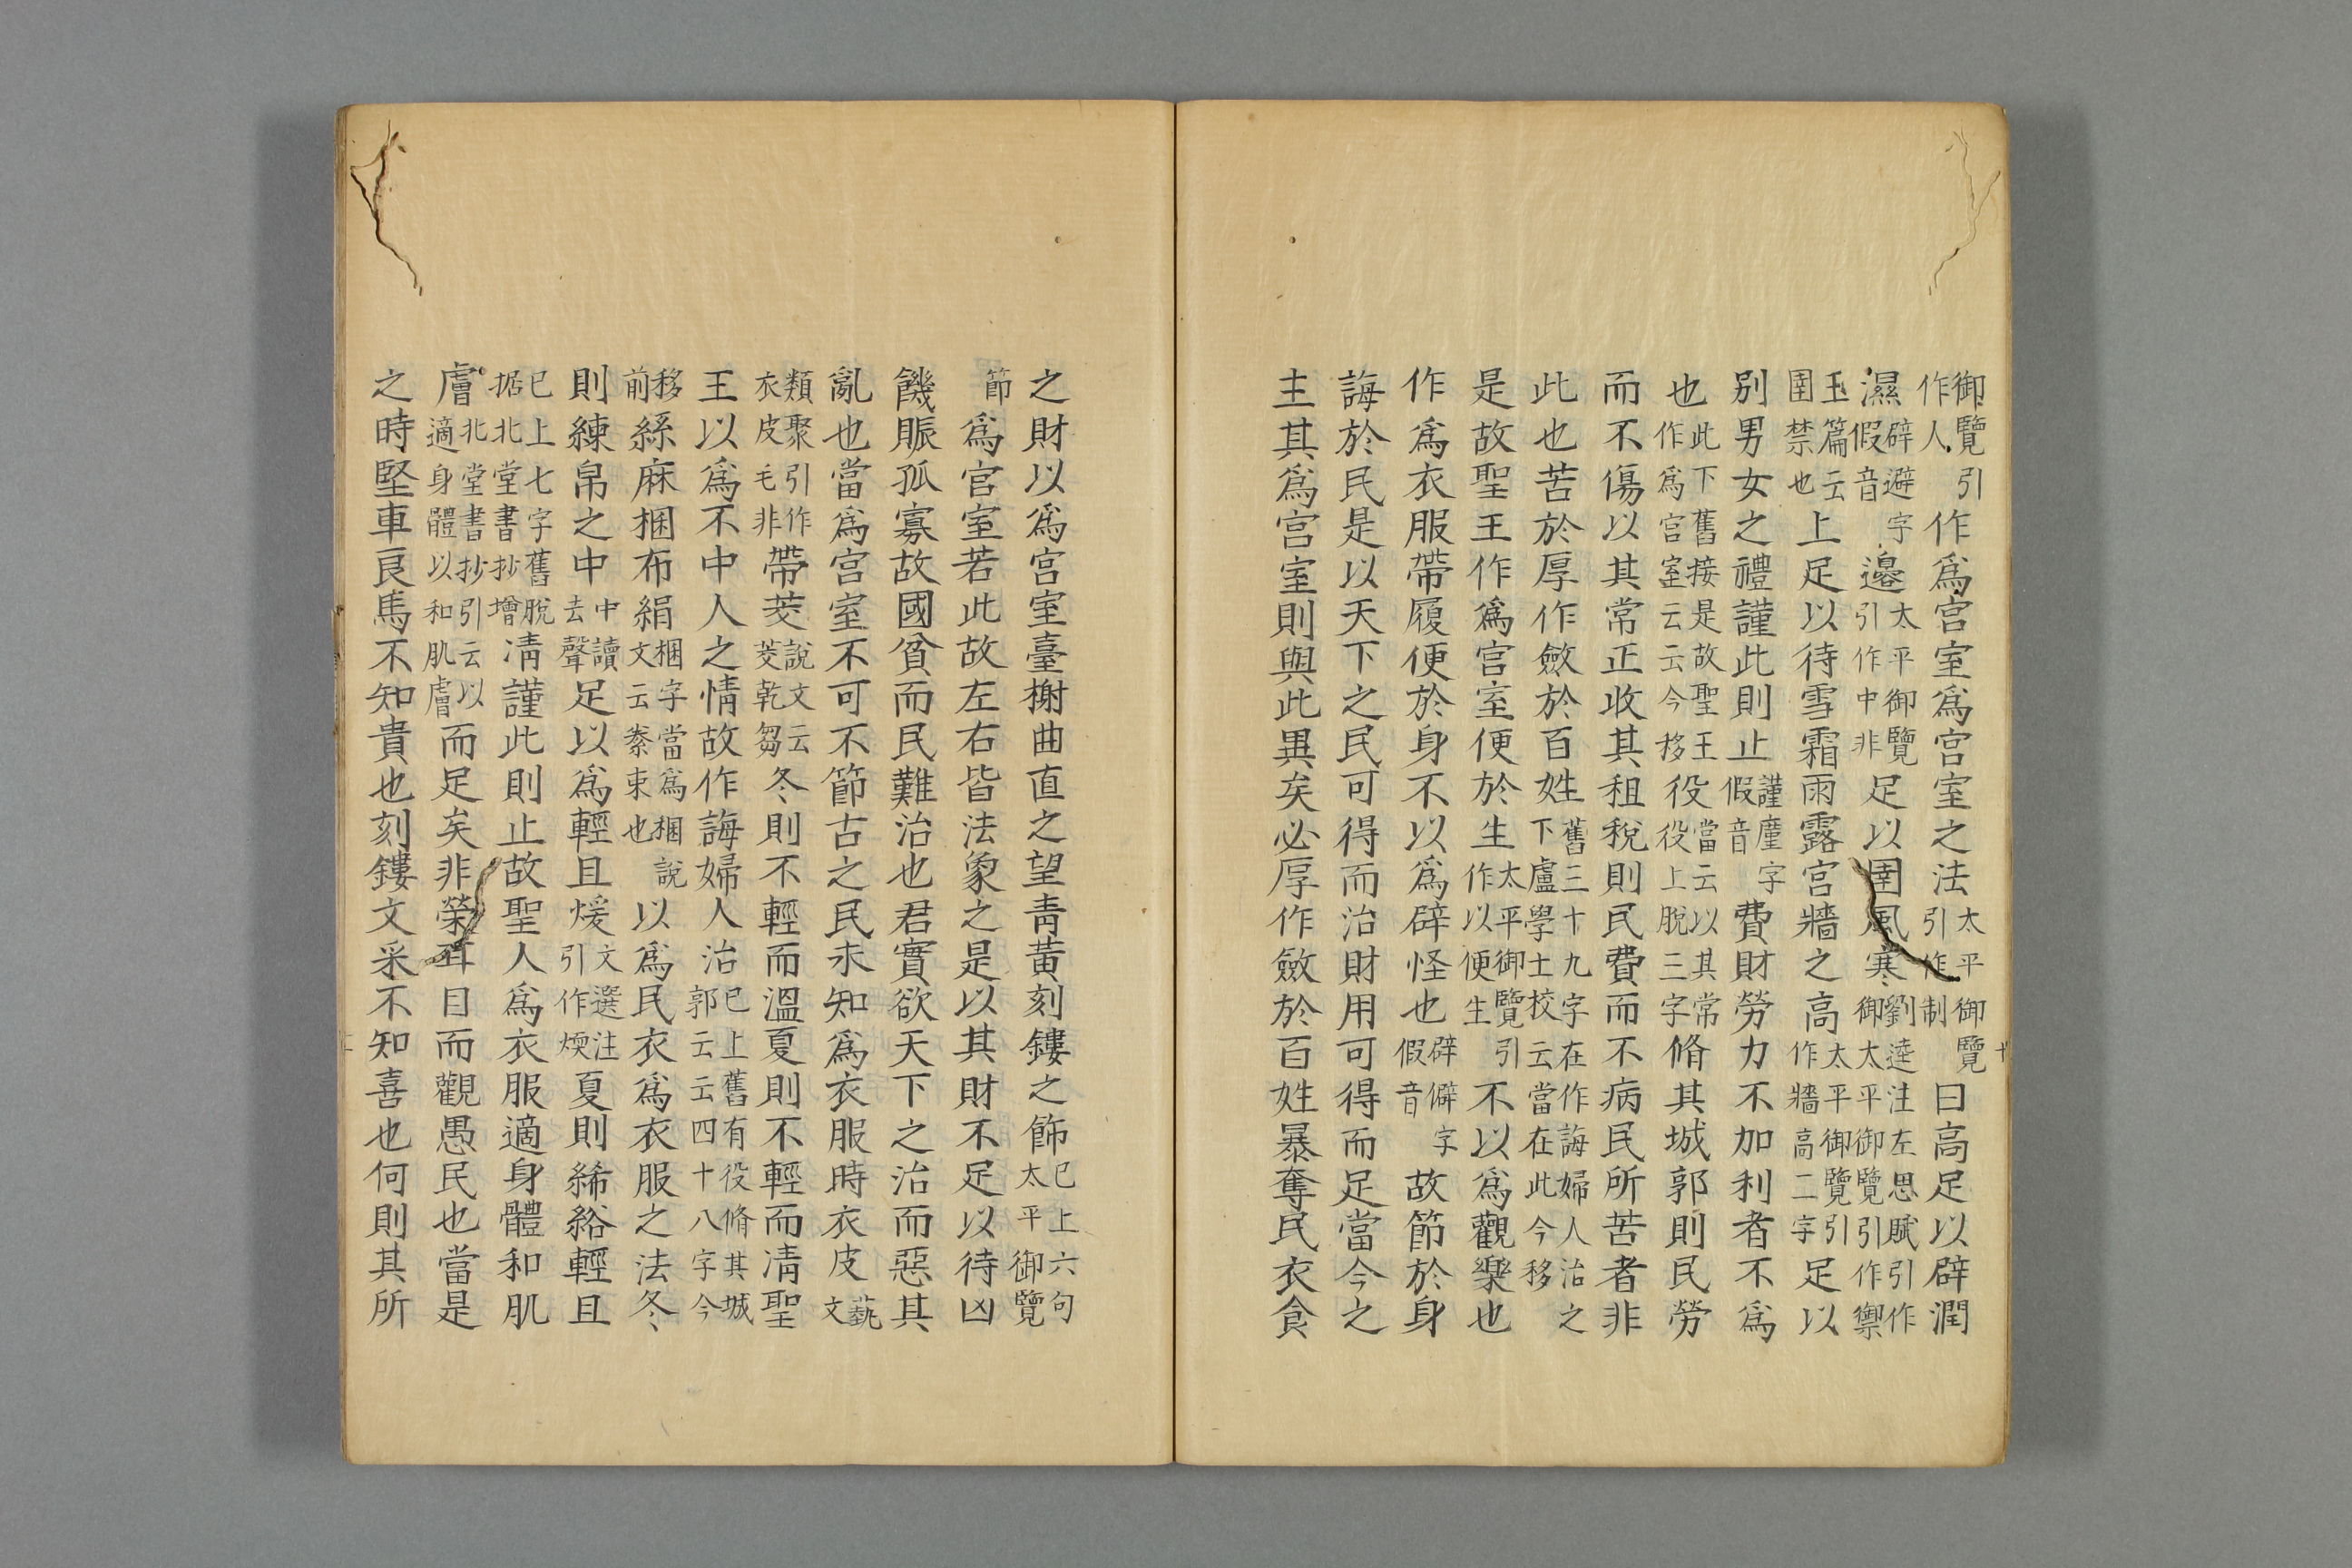 御覽引作人作爲宮室爲宮室之法太平御覽引作制曰高足以辟潤
濕辟避字假音邉太平御覽引作中非足以圉風寒劉逵注左思賦引作御太平御覽引作禦
玉篇云圉禁也上足以待雪霜雨露宮牆之高太平御覽引作牆高二字足以
别男女之禮謹此則止謹廑字假音費財勞力不加利者不爲
也此下舊接是故聖王作爲宮室云云今移役當云以其常役上脫三字脩其城郭則民勞
而不傷以其常正收其租稅則民費而不病民所苦者非
此也苦於厚作斂於百姓舊三十九字在作誨婦人治之下盧學士校云當在此今移
是故聖王作爲宮室便於生太平御覽引作以便生不以爲觀樂也
作爲衣服帶履便於身不以爲辟怪也辟僻字假音故節於身
誨於民是以天下之民可得而治財用可得而足當今之
主其爲宮室則與此異矣必厚作斂於百姓暴奪民衣食
之財以爲宮室臺榭曲直之望青黃刻鏤之飾已上六句太平御覽
節爲宮室若此故左右皆法象之是以其財不足以待凶
饑賑孤寡故國貧而民難治也君實欲天下之治而惡其
亂也當爲宮室不可不節古之民未知爲衣服時衣皮藝文
類聚引作衣皮毛非帶茭說文云茭乾芻冬則不輕而溫夏則不輕而凊聖
王以爲不中人之情故作誨婦人治已上舊有役脩其城郭云云四十八字今
移前絲麻梱布絹梱字當爲梱說文云絭束也以爲民衣爲衣服之法冬
則練帛之中中讀去聲足以爲輕且煖文選注引作煗夏則絺綌輕且
已上七字舊脫据北堂書抄增凊謹此則止故聖人爲衣服適身體和肌
膚北堂書抄引云以適身體以和肌膚而足矣非榮耳目而觀愚民也當是
之時堅車良馬不知貴也刻鏤文采不知喜也何則其所